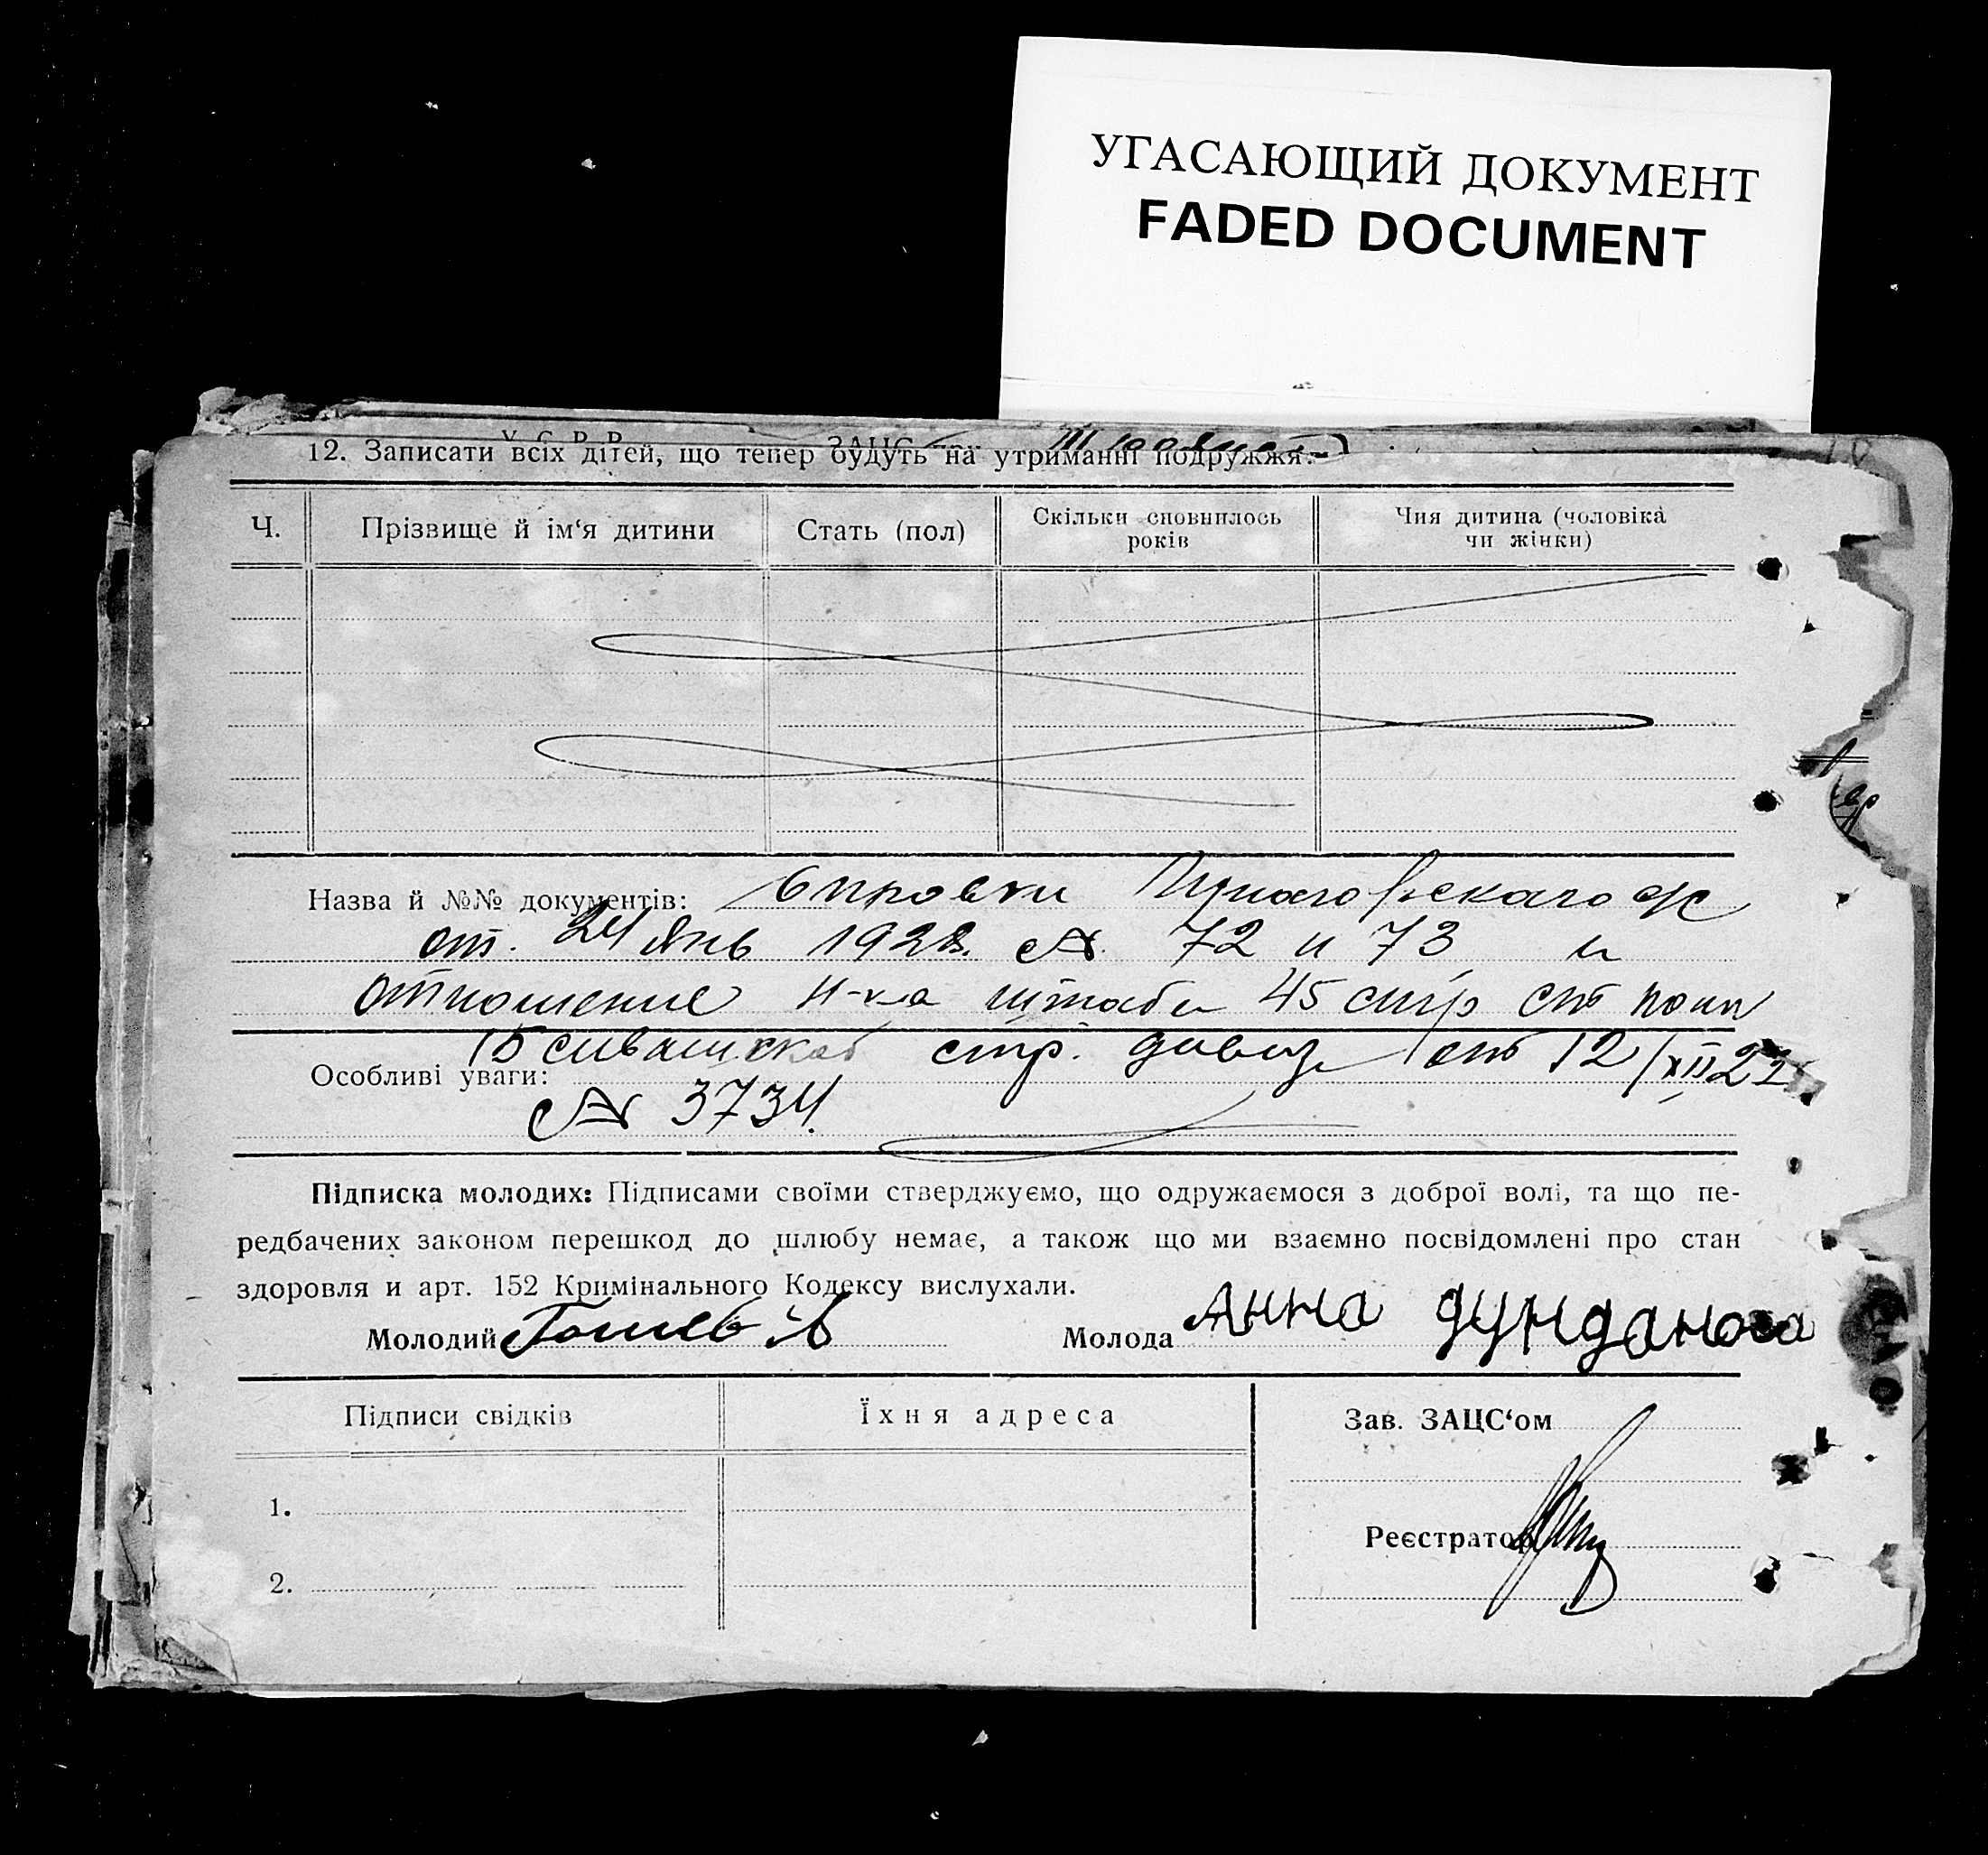 УГАСАЮЩИЙ ДОКУМЕНТ
FADED DOCUMENT
У. С. Р. Р. ЗАЦС
12. Записати всіх дітей, що тепер будуть на утриманні подружжя.
Ч. Прізвище й ім‘я дитини Стать (пол) Скільки сповнилось років Чия дитина (чоловіка чи жінки)
Назва й №№ документів: Справки
от. 24 Янв 1928. № 72 и 73 и
отношение н-ка штаба 45 стр
15 сивашской стр. дивиз от 12/XII 27
Особливі уваги:
№ 3734.
Підписка молодих: Підписами своїми стверджуємо, що одружаємося з доброї волі, та що пе-
редбачених законом перешкод до шлюбу немає, а також що ми взаємно посвідомлені про стан
здоровля и арт. 152 Кримінального Кодексу вислухали.
Молодий Молода Анна Дунданова
Підписи свідків Їхня адреса Зав. ЗАЦС‘ом
1.
Реєстратор
2.